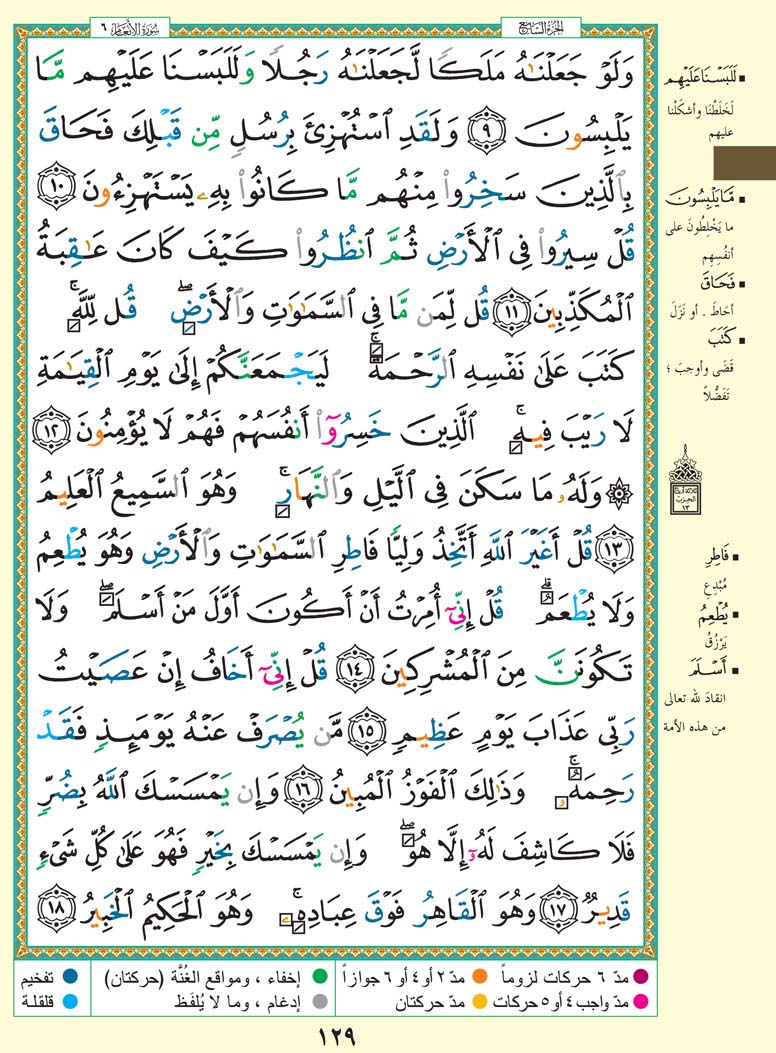 سُورَةُ الأَنْعَام ٦
الجزء السابع
وَلَوْ جَعَلْنَٰهُ مَلَكًا لَّجَعَلْنَٰهُ رَجُلًا وَلَلَبَسْنَا عَلَيْهِم مَّا
يَلْبِسُونَ ٩ وَلَقَدِ ٱسْتُهْزِئَ بِرُسُلٍ مِّن قَبْلِكَ فَحَاقَ
بِٱلَّذِينَ سَخِرُوا۟ مِنْهُم مَّا كَانُوا۟ بِهِۦ يَسْتَهْزِءُونَ ١٠
قُلْ سِيرُوا۟ فِى ٱلْأَرْضِ ثُمَّ ٱنظُرُوا۟ كَيْفَ كَانَ عَٰقِبَةُ
ٱلْمُكَذِّبِينَ ١١ قُل لِّمَن مَّا فِى ٱلسَّمَٰوَٰتِ وَٱلْأَرْضِ ۖ قُل لِّلَّهِ ۚ
كَتَبَ عَلَىٰ نَفْسِهِ ٱلرَّحْمَةَ ۚ لَيَجْمَعَنَّكُمْ إِلَىٰ يَوْمِ ٱلْقِيَٰمَةِ
لَا رَيْبَ فِيهِ ۚ ٱلَّذِينَ خَسِرُوٓا۟ أَنفُسَهُمْ فَهُمْ لَا يُؤْمِنُونَ ١٢
۞ وَلَهُۥ مَا سَكَنَ فِى ٱلَّيْلِ وَٱلنَّهَارِ ۚ وَهُوَ ٱلسَّمِيعُ ٱلْعَلِيمُ
١٣ قُلْ أَغَيْرَ ٱللَّهِ أَتَّخِذُ وَلِيًّا فَاطِرِ ٱلسَّمَٰوَٰتِ وَٱلْأَرْضِ وَهُوَ يُطْعِمُ
وَلَا يُطْعَمُ ۗ قُلْ إِنِّىٓ أُمِرْتُ أَنْ أَكُونَ أَوَّلَ مَنْ أَسْلَمَ ۖ وَلَا
تَكُونَنَّ مِنَ ٱلْمُشْرِكِينَ ١٤ قُلْ إِنِّىٓ أَخَافُ إِنْ عَصَيْتُ
رَبِّى عَذَابَ يَوْمٍ عَظِيمٍ ١٥ مَّن يُصْرَفْ عَنْهُ يَوْمَئِذٍ فَقَدْ
رَحِمَهُۥ ۚ وَذَٰلِكَ ٱلْفَوْزُ ٱلْمُبِينُ ١٦ وَإِن يَمْسَسْكَ ٱللَّهُ بِضُرٍّ
فَلَا كَاشِفَ لَهُۥٓ إِلَّا هُوَ ۖ وَإِن يَمْسَسْكَ بِخَيْرٍ فَهُوَ عَلَىٰ كُلِّ شَىْءٍ
قَدِيرٌ ١٧ وَهُوَ ٱلْقَاهِرُ فَوْقَ عِبَادِهِۦ ۚ وَهُوَ ٱلْحَكِيمُ ٱلْخَبِيرُ ١٨
▪ لَلَبَسْنَا عَلَيْهِم
لَخَلَطْنَا وأشكَلْنا
عليهم
▪ مَّا يَلْبِسُونَ
ما يَخْلِطُونَ على
أنفُسِهِم
▪ فَحَاقَ
أحَاطَ . أو نَزَلَ
▪ كَتَبَ
قَضَى وأوجبَ ؛
تَفَضُّلاً
ثلاثة أرباع
الحزب
١٣
▪ فَاطِرِ
مُبْدِعِ
▪ يُطْعِمُ
يَرْزُقُ
▪ أَسْلَمَ
انقادَ لله تعالى
من هذه الأمة
مدّ ٦ حركات لزوماً
مدّ ٢ أو ٤ أو ٦ جوازاً
إخفاء ، ومواقع الغُنَّة (حركتان)
تفخيم
مدّ واجب ٤ أو ٥ حركات
مدّ حركتان
إدغام ، وما لا يُلفَظ
قلقلة
١٢٩